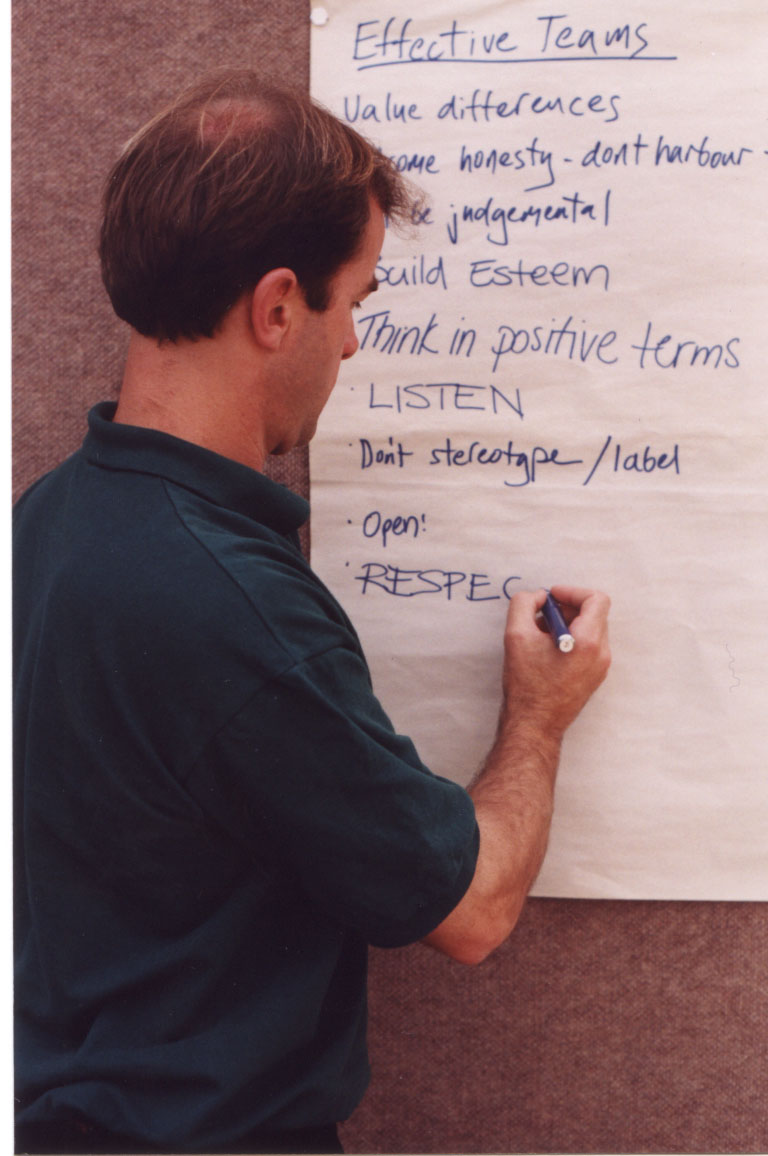 Effective Teams
Value differences
honesty - dont harbour
judgemental
Build Esteem
Think in positive terms
· LISTEN
· Don't stereotype / label
· Open!
· RESPEC